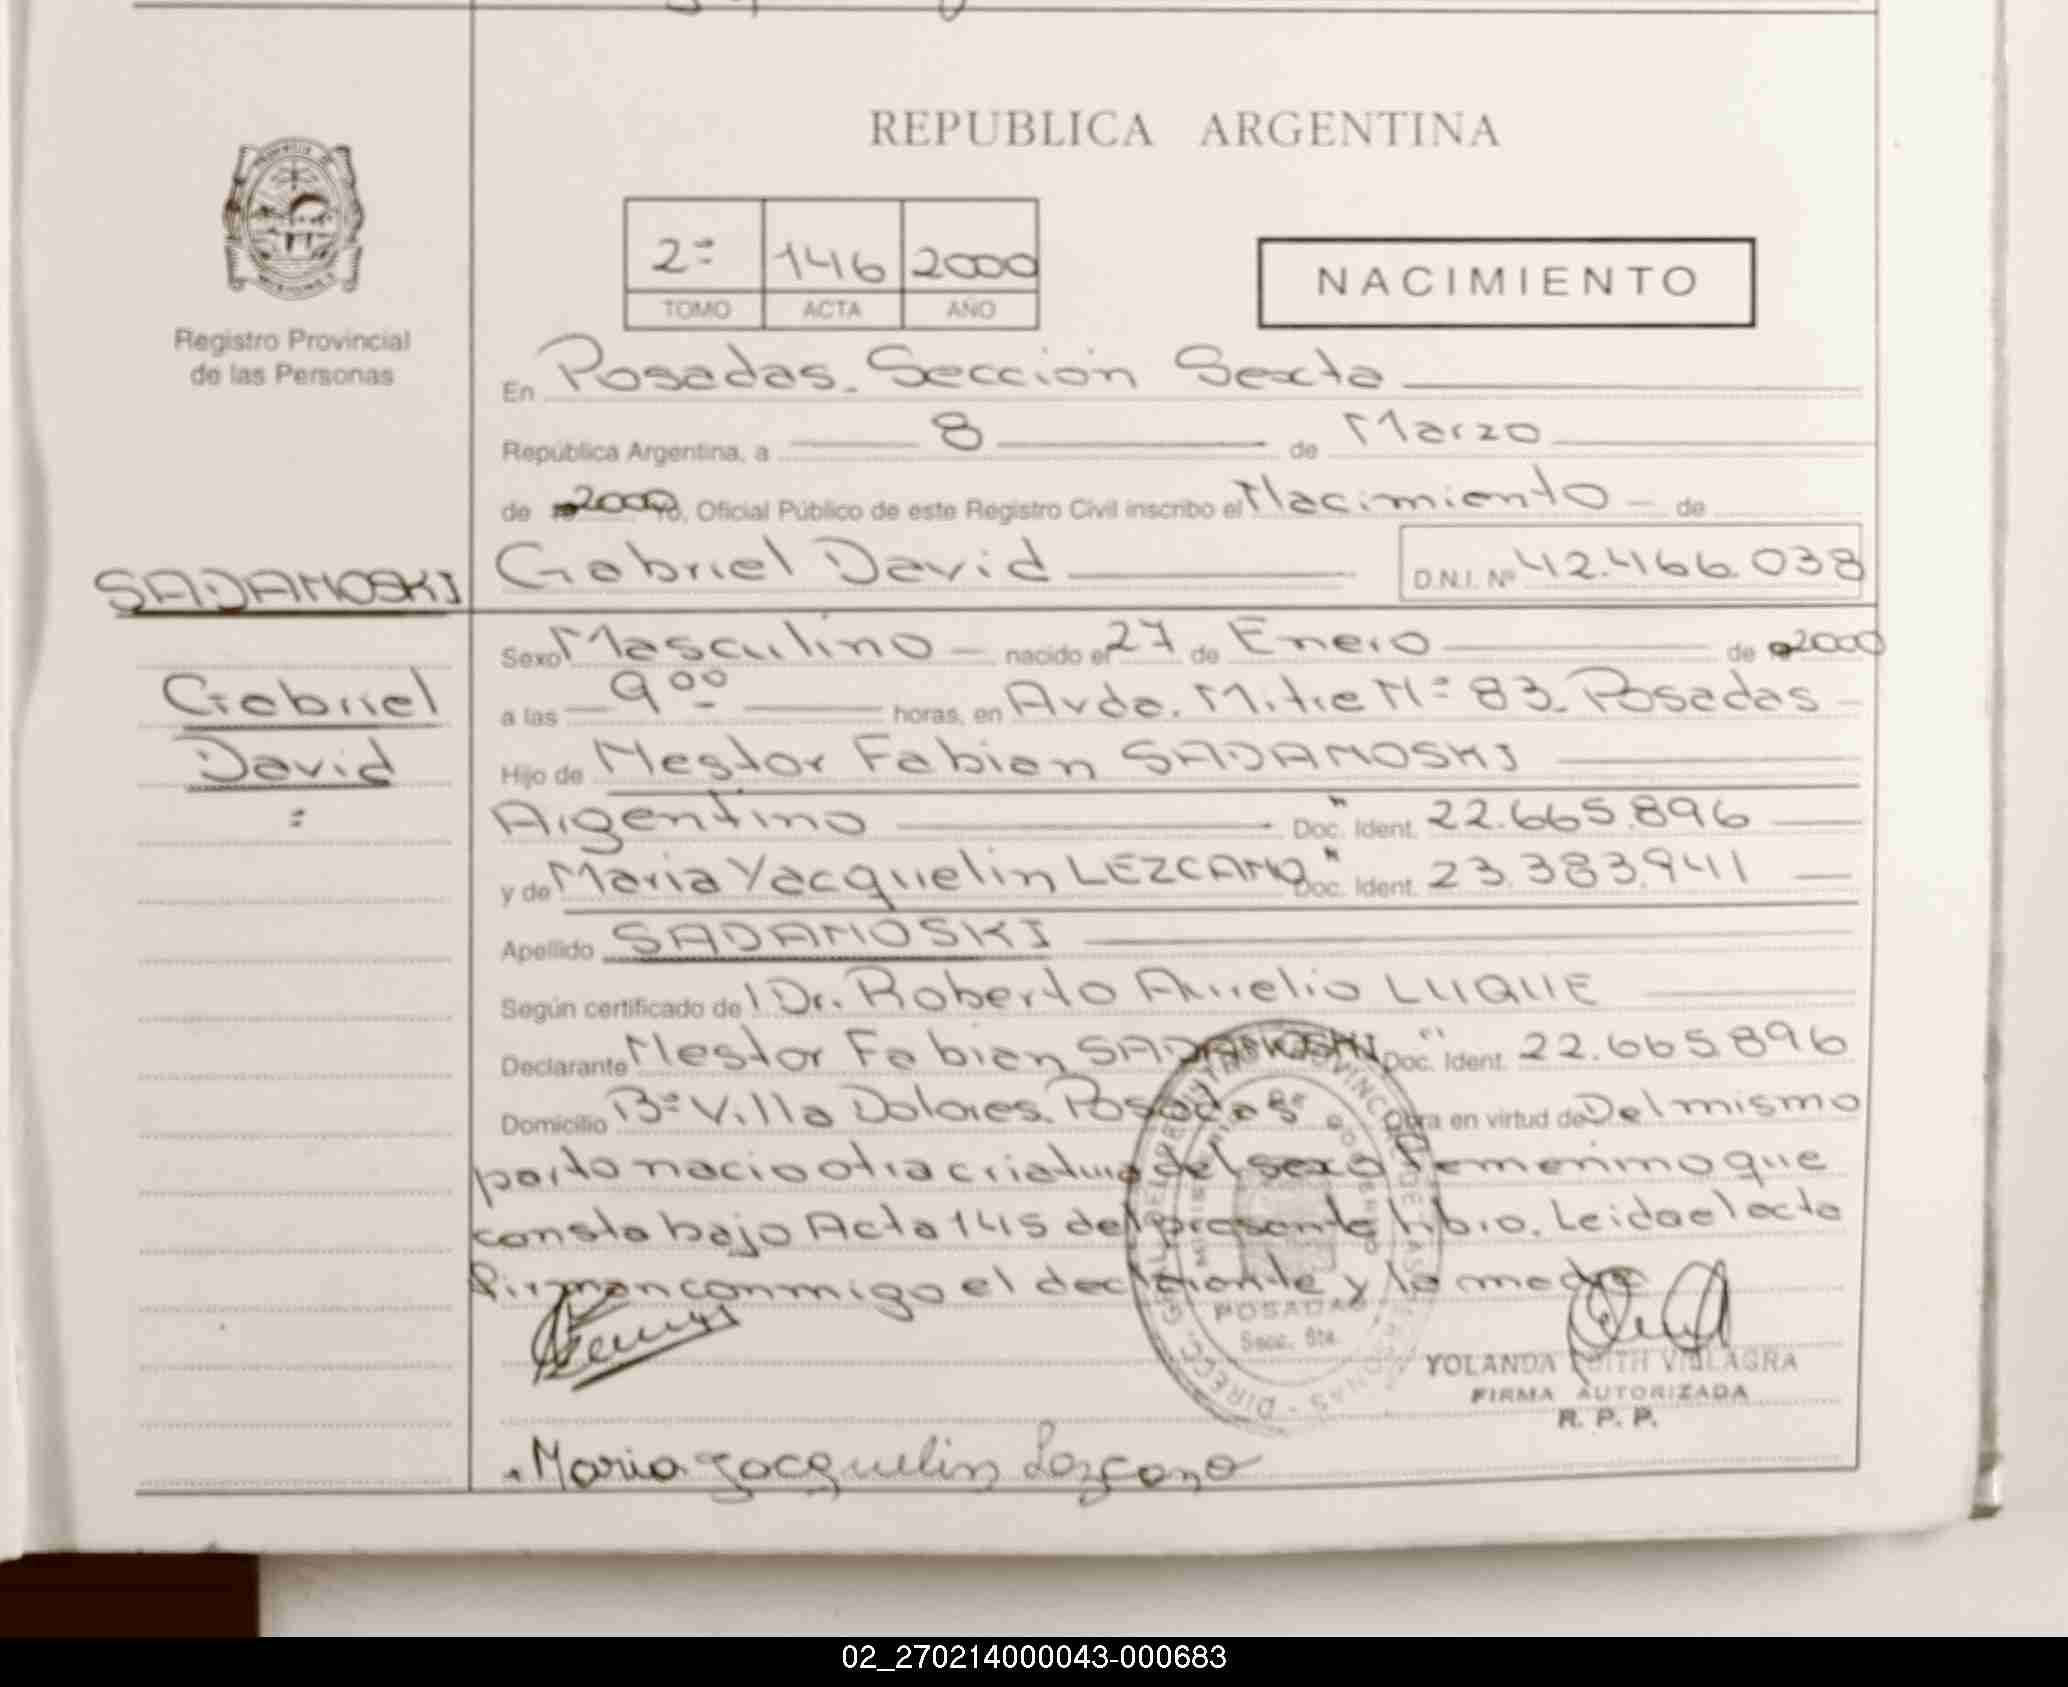 REPUBLICA ARGENTINA
2º 146 2000
TOMO ACTA AÑO
NACIMIENTO
Registro Provincial
de las Personas
En Posadas. Sección Sexta
República Argentina, a 8 de Marzo
de 2000 Yo, Oficial Público de este Registro Civil inscribo el Nacimiento de
Gabriel David D.N.I. Nº 42.466.038
SADANOSKI
Gabriel
David
Sexo Masculino nacido el 27 de Enero de 2000
a las 9 00 horas, en Avda. Mitre Nº 83. Posadas
Hijo de Nestor Fabian SADANOSKI
Argentino Doc. Ident. 22.665.896
y de Maria Yacquelin LEZCANO Doc. Ident. 23.383.941
Apellido SADANOSKI
Según certificado de Dr. Roberto Aurelio LUQUE
Declarante Nestor Fabian SADANOSKI Doc. Ident. 22.665.896
Domicilio Bº Villa Dolores. Posadas Obra en virtud de Del mismo
parto nacio otra criatura del sexo femenino que
consta bajo Acta 145 del presente libro. Leida el acta
firman conmigo el declarante y la madre
POSADAS
Secc. 6ta.
YOLANDA EDITH VILLAGRA
FIRMA AUTORIZADA
R. P. P.
Maria Jacquelin Lezcano
02_270214000043-000683